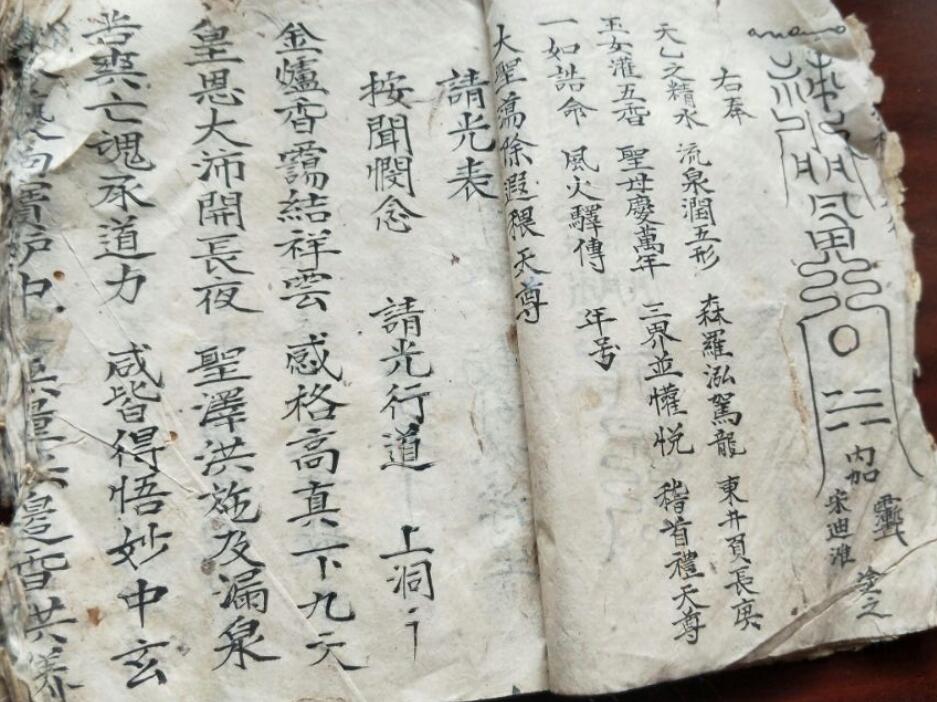 內加
宋迪淮
塗之
右奉
天乙之精水 流泉潤五形 森羅泓駕龍 東井貢長庚
玉女灌五香 聖母慶萬年 三界並懽悅 稽首禮天尊
一如誥命 風火驛傳 年号
大聖蕩除遐穢天尊
請光表
按聞憫念 請光行道 上洞
金爐香靄結祥雲 感格高真下九天
皇恩大沛開長夜 聖澤洪施及漏泉
苦爽亡魂承道力 咸皆得悟妙中玄
中 邊香供養